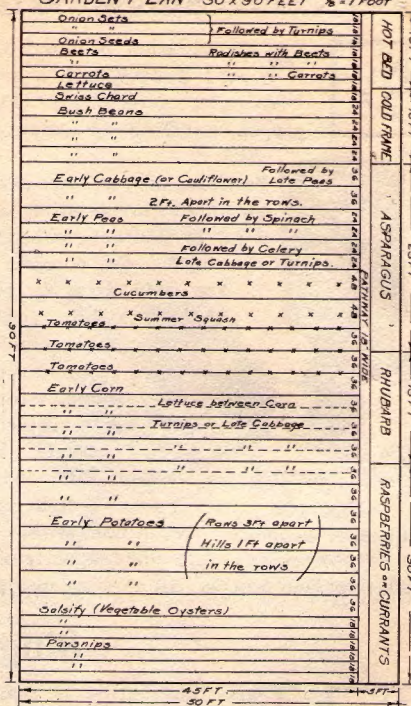 GARDEN PLAN 30 x 90 FEET ⅛"=1 FOOT
Onion Sets
Followed by Turnips
Onion Seeds
Beets Radishes with Beets
" " " "
Carrots " " Carrots
Lettuce
Swiss Chard
Bush Beans
" "
" "
" "
Early Cabbage (or Cauliflower) Followed by
Late Peas
" " 2 Ft. Apart in the rows.
Early Peas Followed by Spinach
" " " " "
" " Followed by Celery
" " Late Cabbage or Turnips.
Cucumbers
Tomatoes Summer Squash
Tomatoes
Tomatoes
Early Corn
Lettuce between Corn
" "
Turnips or Late Cabbage
" "
" " "
" "
" " "
" "
" "
Early Potatoes (Rows 3 Ft apart
" " Hills 1 Ft apart
" " in the rows)
" "
Salsify (Vegetable Oysters)
"
Parsnips
"
"
PATHWAY 18" WIDE
HOT BED
COLD FRAME
ASPARAGUS
RHUBARB
RASPBERRIES OR CURRANTS
90 FT
45 FT
5 FT
50 FT